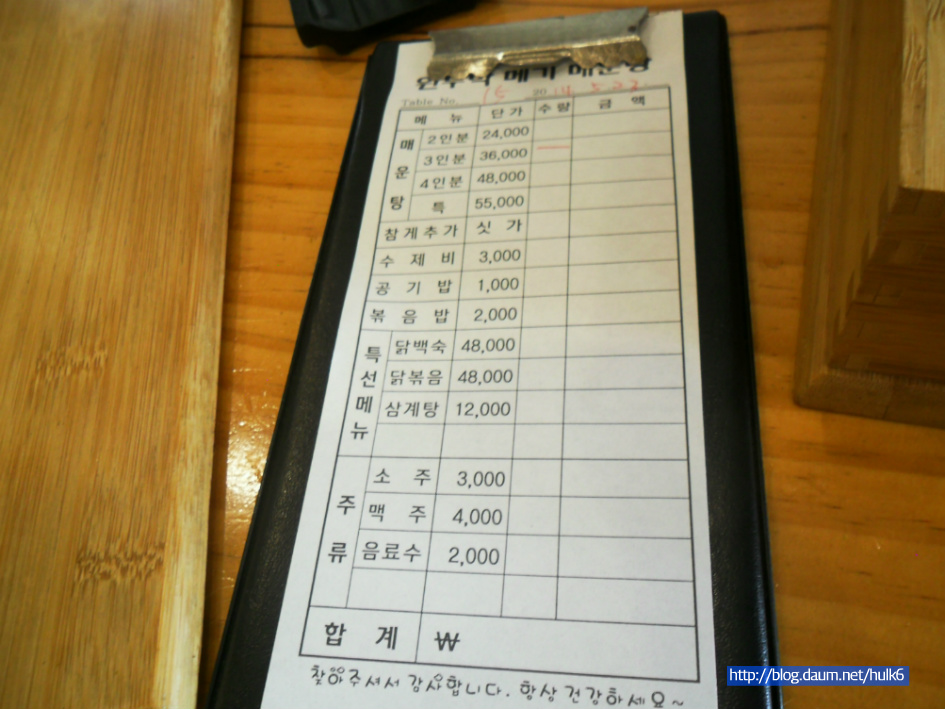 메기 매운탕
Table No. 15 2014. 5. 23.
메 뉴 단 가 수 량 금 액
매운탕 2인분 24,000
3인분 36,000
4인분 48,000
특 55,000
참게추가 싯 가
수 제 비 3,000
공 기 밥 1,000
볶 음 밥 2,000
특선메뉴 닭백숙 48,000
닭볶음 48,000
삼계탕 12,000
주류 소 주 3,000
맥 주 4,000
음료수 2,000
합 계 ₩
찾아주셔서 감사합니다. 항상 건강하세요~
http://blog.daum.net/hulk6